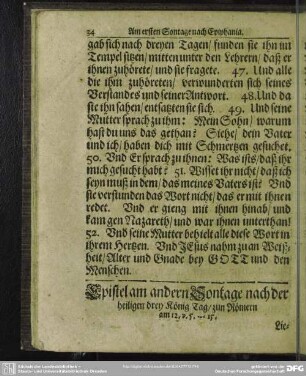 54 Am ersten Sontage nach Epiphania.
gab sich nach dreyen Tagen / funden sie ihn im
Tempel sitzen / mitten unter den Lehrern / daß er
ihnen zuhörete / und sie fragete. 47. Und alle
die ihm zuhöreten / verwunderten sich seines
Verstandes und seiner Antwort. 48. Und da
sie ihn sahen / entsatzten sie sich. 49. Und seine
Mutter sprach zu ihm: Mein Sohn / warum
hast du uns das gethan? Siehe / dein Vater
und ich / haben dich mit Schmertzen gesuchet.
50. Und Er sprach zu ihnen: Was ists / daß ihr
mich gesucht habt? 51. Wisset ihr nicht / daß ich
seyn muß in dem / das meines Vaters ist? Und
sie verstunden das Wort nicht / das er mit ihnen
redet. Und er gieng mit ihnen hinab / und
kam gen Nazareth / und war ihnen unterthan.
52. Und seine Mutter behielt alle diese Wort in
ihrem Hertzen. Und JEsus nahm zu an Weiß-
heit / Alter und Gnade bey GOTT und den
Menschen.
Epistel am andern Sontage nach der
heiligen drey König Tag / zun Römern
am 12. v.
Lie-